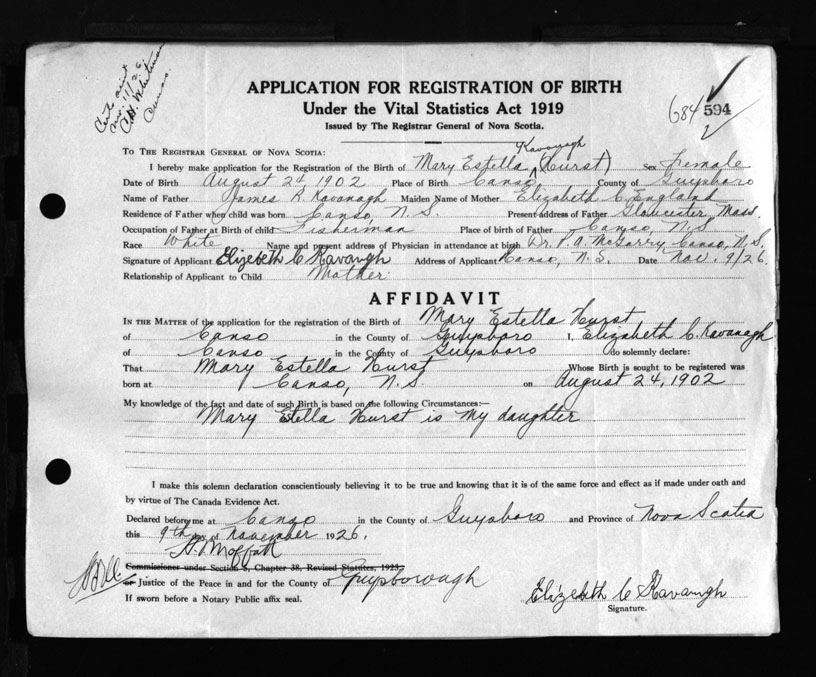 Cert. sent
Nov. 11/26
C.H. Whitman
Canso.
APPLICATION FOR REGISTRATION OF BIRTH
Under the Vital Statistics Act 1919
Issued by The Registrar General of Nova Scotia.
684 594
Kavanagh
TO THE REGISTRAR GENERAL OF NOVA SCOTIA:
I hereby make application for the Registration of the Birth of Mary Estella (Hurst) Sex Female
Date of Birth August 24 1902 Place of Birth Canso County of Guysboro
Name of Father James R. Kavanagh Maiden Name of Mother Elizabeth C. England
Residence of Father when child was born Canso, N.S. Present address of Father Gloucester, Mass.
Occupation of Father at Birth of child Fisherman Place of birth of Father Canso, N.S
Race White Name and present address of Physician in attendance at birth Dr. P. A. McGarry, Canso, N.S.
Signature of Applicant Elizebeth C Kavaugh Address of Applicant Canso, N.S. Date Nov. 9/26.
Relationship of Applicant to Child Mother.
AFFIDAVIT
IN THE MATTER of the application for the registration of the Birth of Mary Estella Hurst
of Canso in the County of Guysboro I, Elizabeth C. Kavanagh
of Canso in the County of Guysboro do solemnly declare:
That Mary Estella Hurst Whose Birth is sought to be registered was
born at Canso, N.S. on August 24, 1902
My knowledge of the fact and date of such Birth is based on the following Circumstances:—
Mary Estella Hurst is my daughter
I make this solemn declaration conscientiously believing it to be true and knowing that it is of the same force and effect as if made under oath and
by virtue of The Canada Evidence Act.
Declared before me at Canso in the County of Guysboro and Province of Nova Scotia
this 9th day of November 1926.
A. Moffatt
Commissioner under Section 8, Chapter 38, Revised Statutes, 1923,
or Justice of the Peace in and for the County of Guysborough
If sworn before a Notary Public affix seal.
Elizebeth C Kavaugh
Signature.